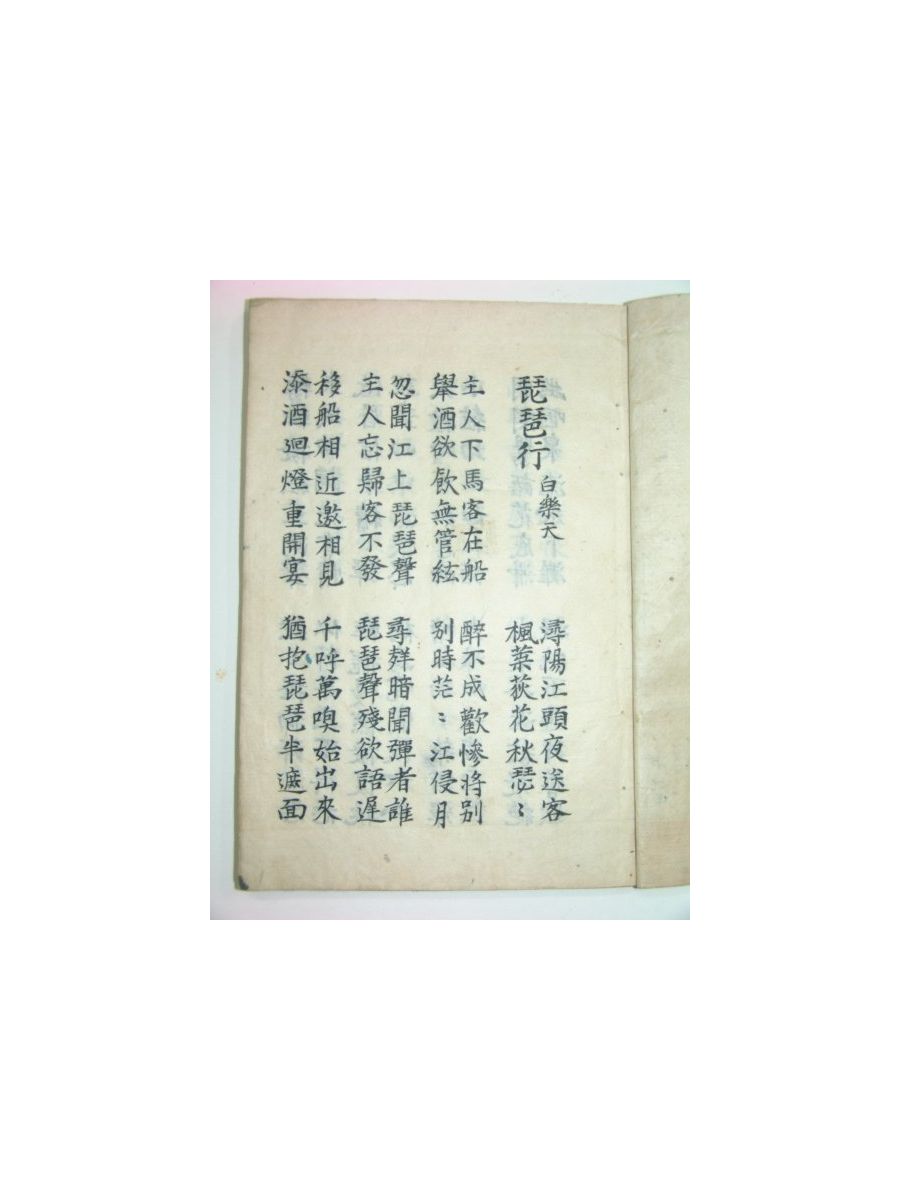 琵琶行 白樂天
潯陽江頭夜送客
楓葉荻花秋瑟〻
主人下馬客在船
舉酒欲飮無管絃
醉不成歡慘將别
别時茫〻江侵月
忽聞江上琵琶聲
主人忘歸客不發
尋聲暗聞彈者誰
琵琶聲殘欲語遲
移船相近邀相見
添酒迴燈重開宴
千呼萬喚始出來
猶抱琵琶半遮面